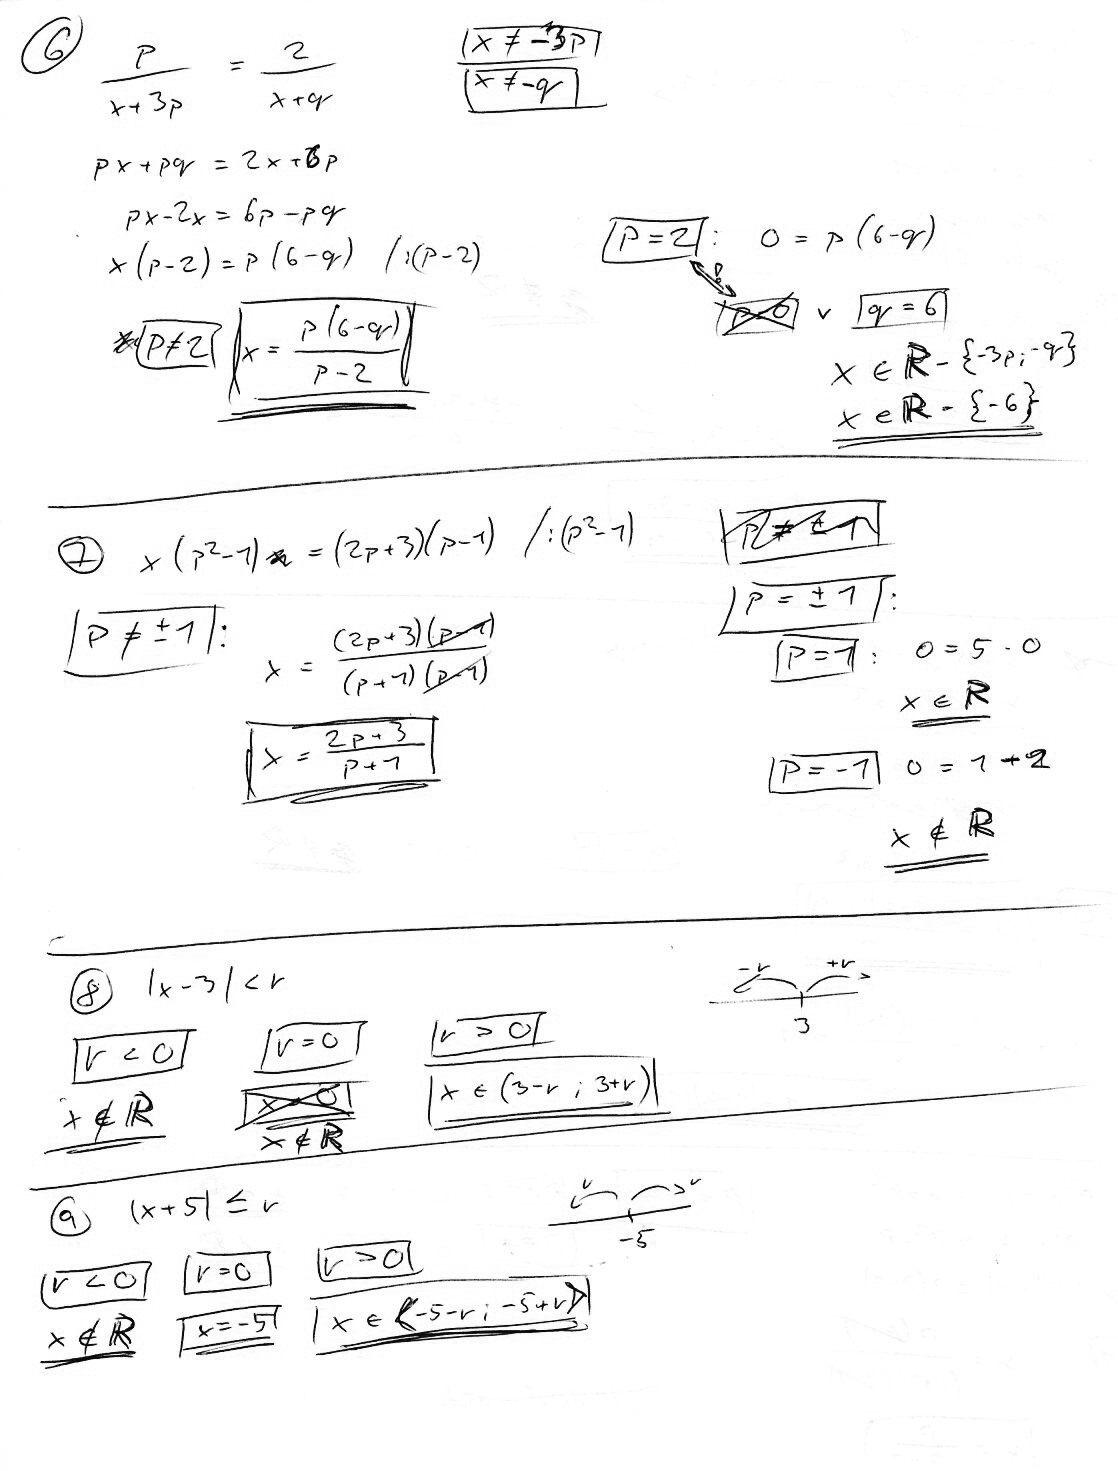 6
p/(x+3p) = 2/(x+q)
x ≠ -3p
x ≠ -q
px+pq = 2x+6p
px-2x = 6p-pq
x(p-2) = p(6-q) /:(p-2)
p≠2 x = p(6-q)/(p-2)
p=2: 0 = p(6-q)
p=0 v q=6
x ∈ R - {-3p; -q}
x ∈ R - {-6}
7 x(p²-1) = (2p+3)(p-1) /:(p²-1)
p ≠ ±1:
x = (2p+3)(p-1)/(p+1)(p-1)
x = (2p+3)/(p+1)
p ≠ ±1
p = ±1:
p=1: 0 = 5·0
x ∈ R
p=-1 0 = 1+2
x ∉ R
8 |x-3| < r
-r +r
3
r < 0 r=0 r > 0
x ∉ R x=0 x ∈ (3-r ; 3+r)
x ∉ R
9 |x+5| ≤ r
r r
-5
r < 0 r=0 r > 0
x ∉ R x=-5 x ∈ ⟨-5-r ; -5+r⟩